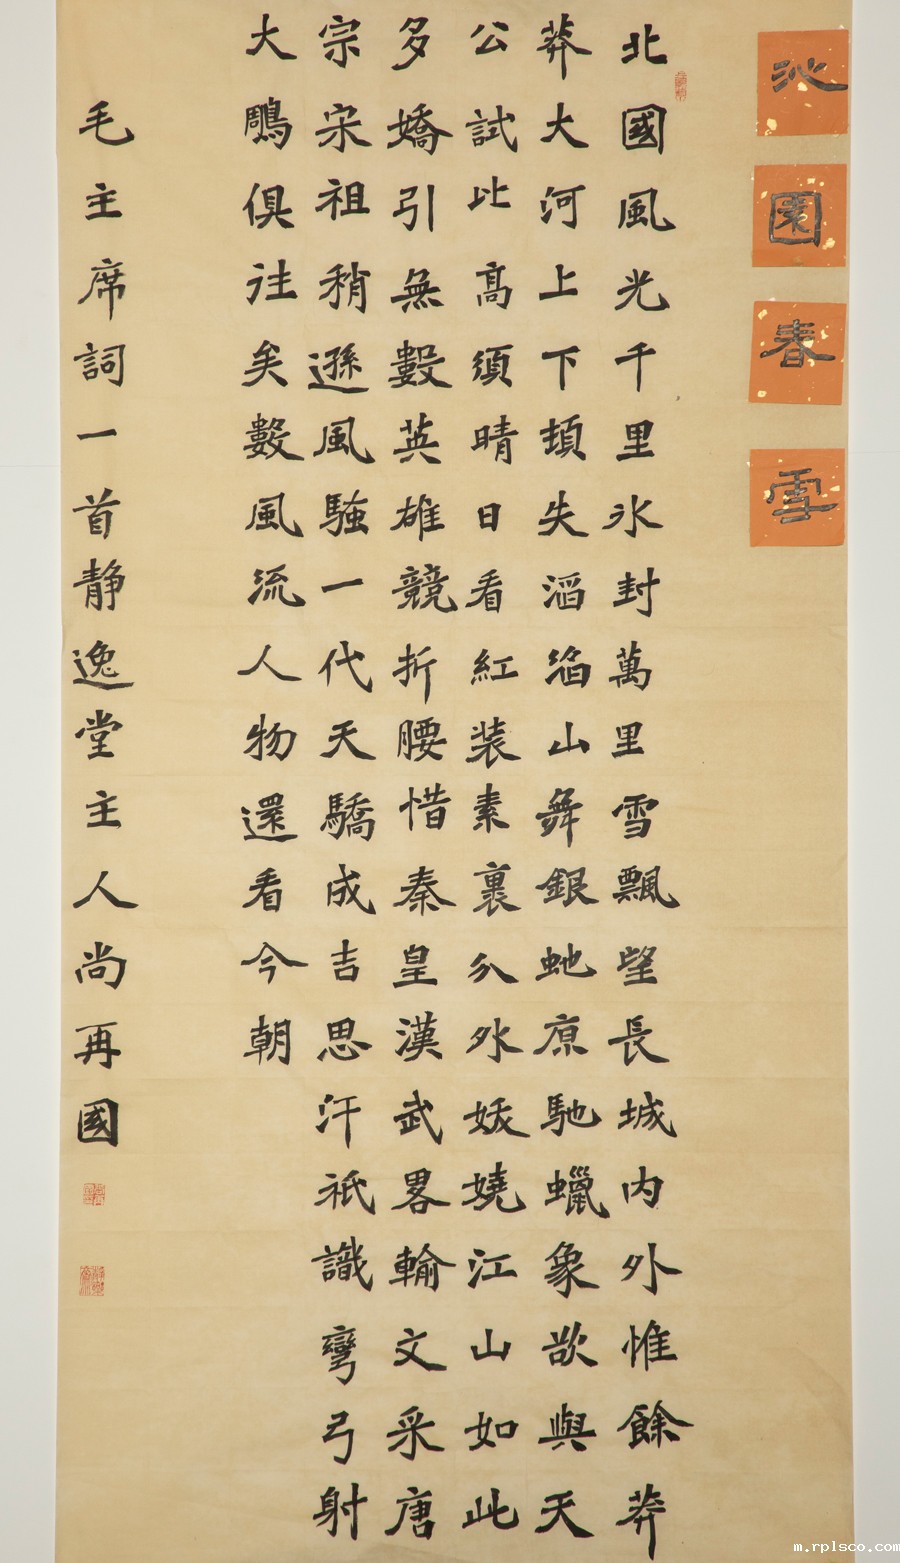 沁園春雪
北國風光千里氷封萬里雪飄望長城内外惟餘莽
莽大河上下頓失滔滔山舞銀虵原馳蠟象欲與天
公試比高須晴日看紅装素裹分外妖嬈江山如此
多嬌引無數英雄競折腰惜秦皇漢武畧輸文采唐
宗宋祖稍遜風騷一代天驕成吉思汗祇識彎弓射
大鵰俱往矣數風流人物還看今朝
毛主席詞一首静逸堂主人尚再國
m.rplsco.com